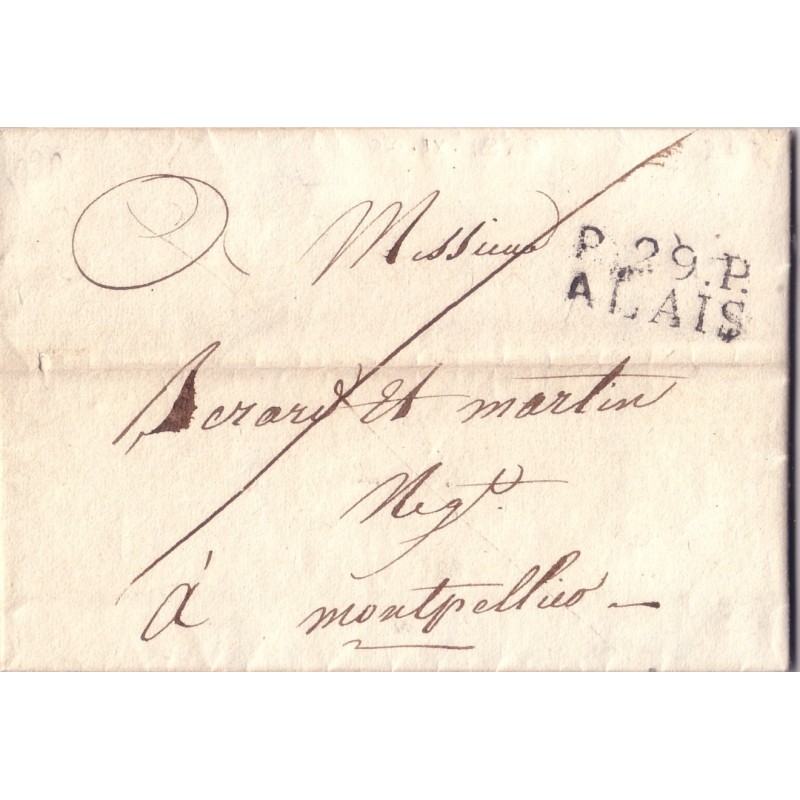 A Messieurs
P. 29. P.
ALAIS
Berard et martin
Neg.ts
à montpellier